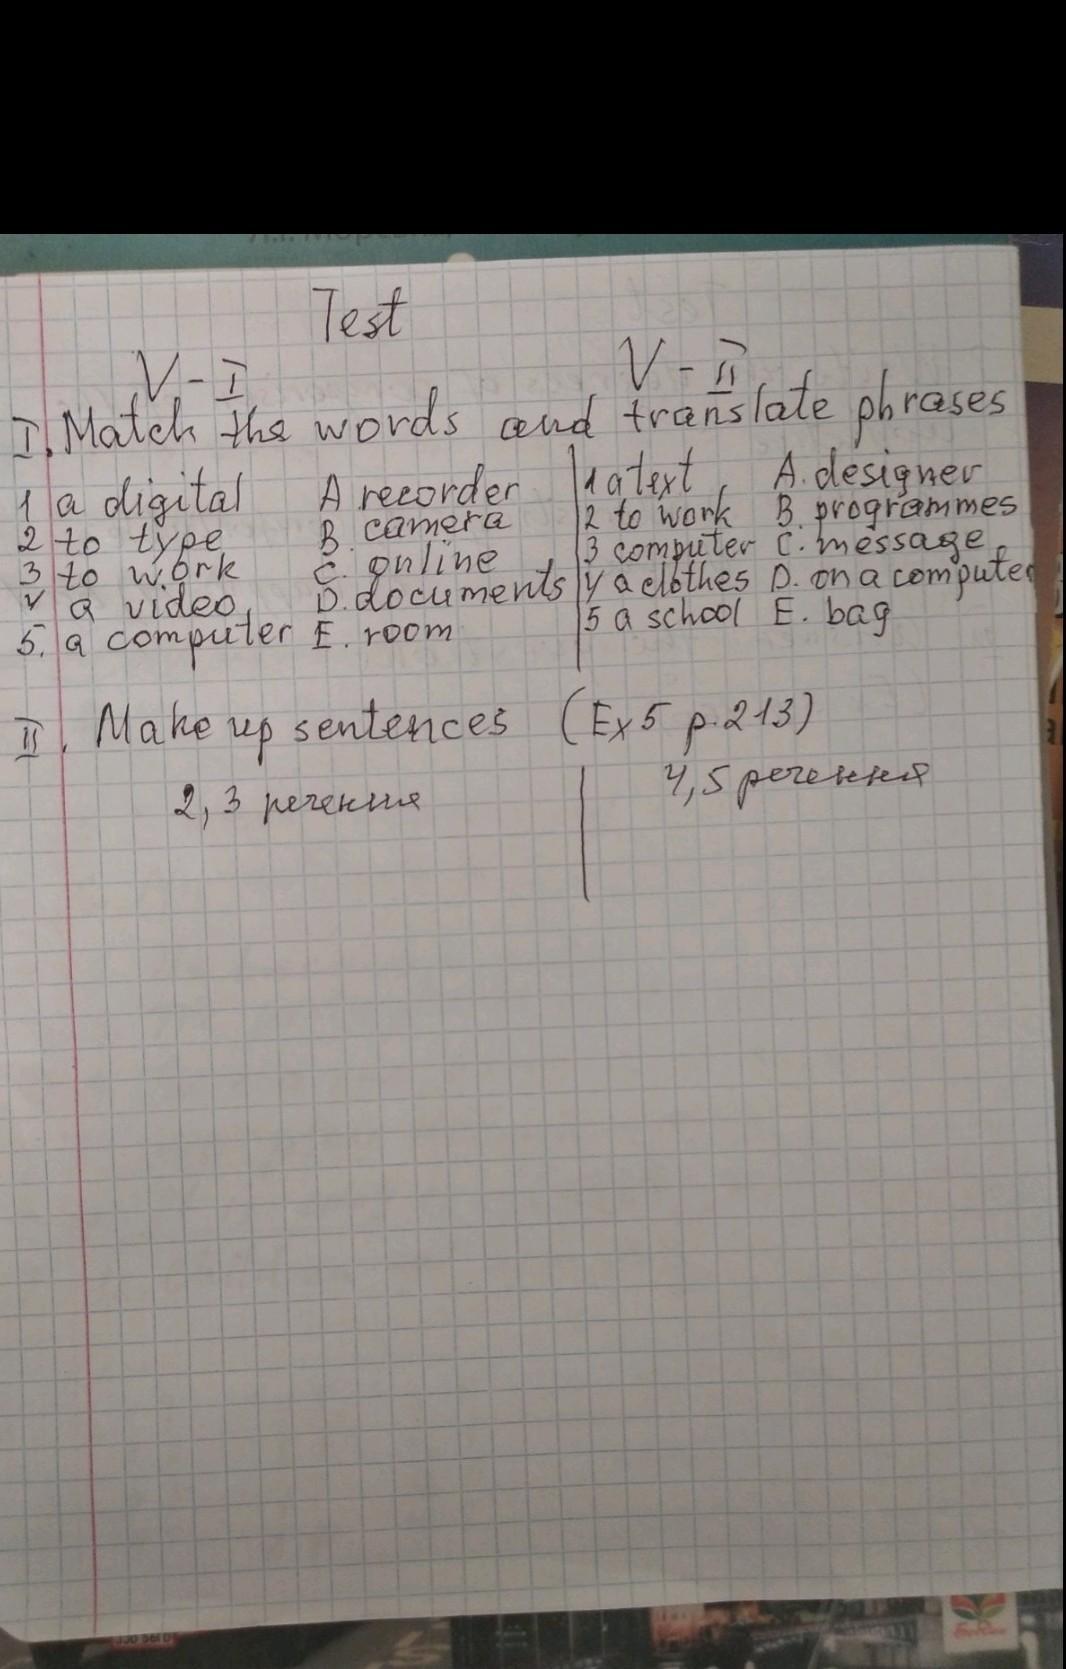 Test
V - I V - II
I. Match the words and translate phrases
1 a digital A recorder
2 to type B. camera
3 to work C. online
4 a video D. documents
5. a computer E. room
1 a text A. designer
2 to work B. programmes
3 computer C. message
4 a clothes D. on a computer
5 a school E. bag
II. Make up sentences (Ex 5 p. 213)
2, 3 речення
4, 5 речення